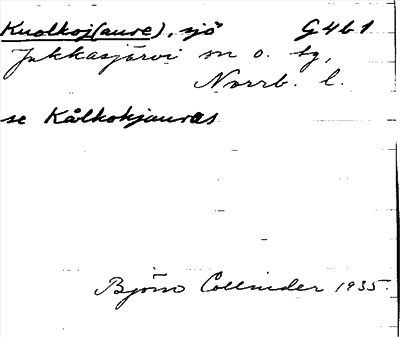 Kuolkoj(aure), sjö G4b1
Jukkasjärvi sn o. tg,
Norrb. l.
se Kålkokjauras
Björn Collinder 1935.